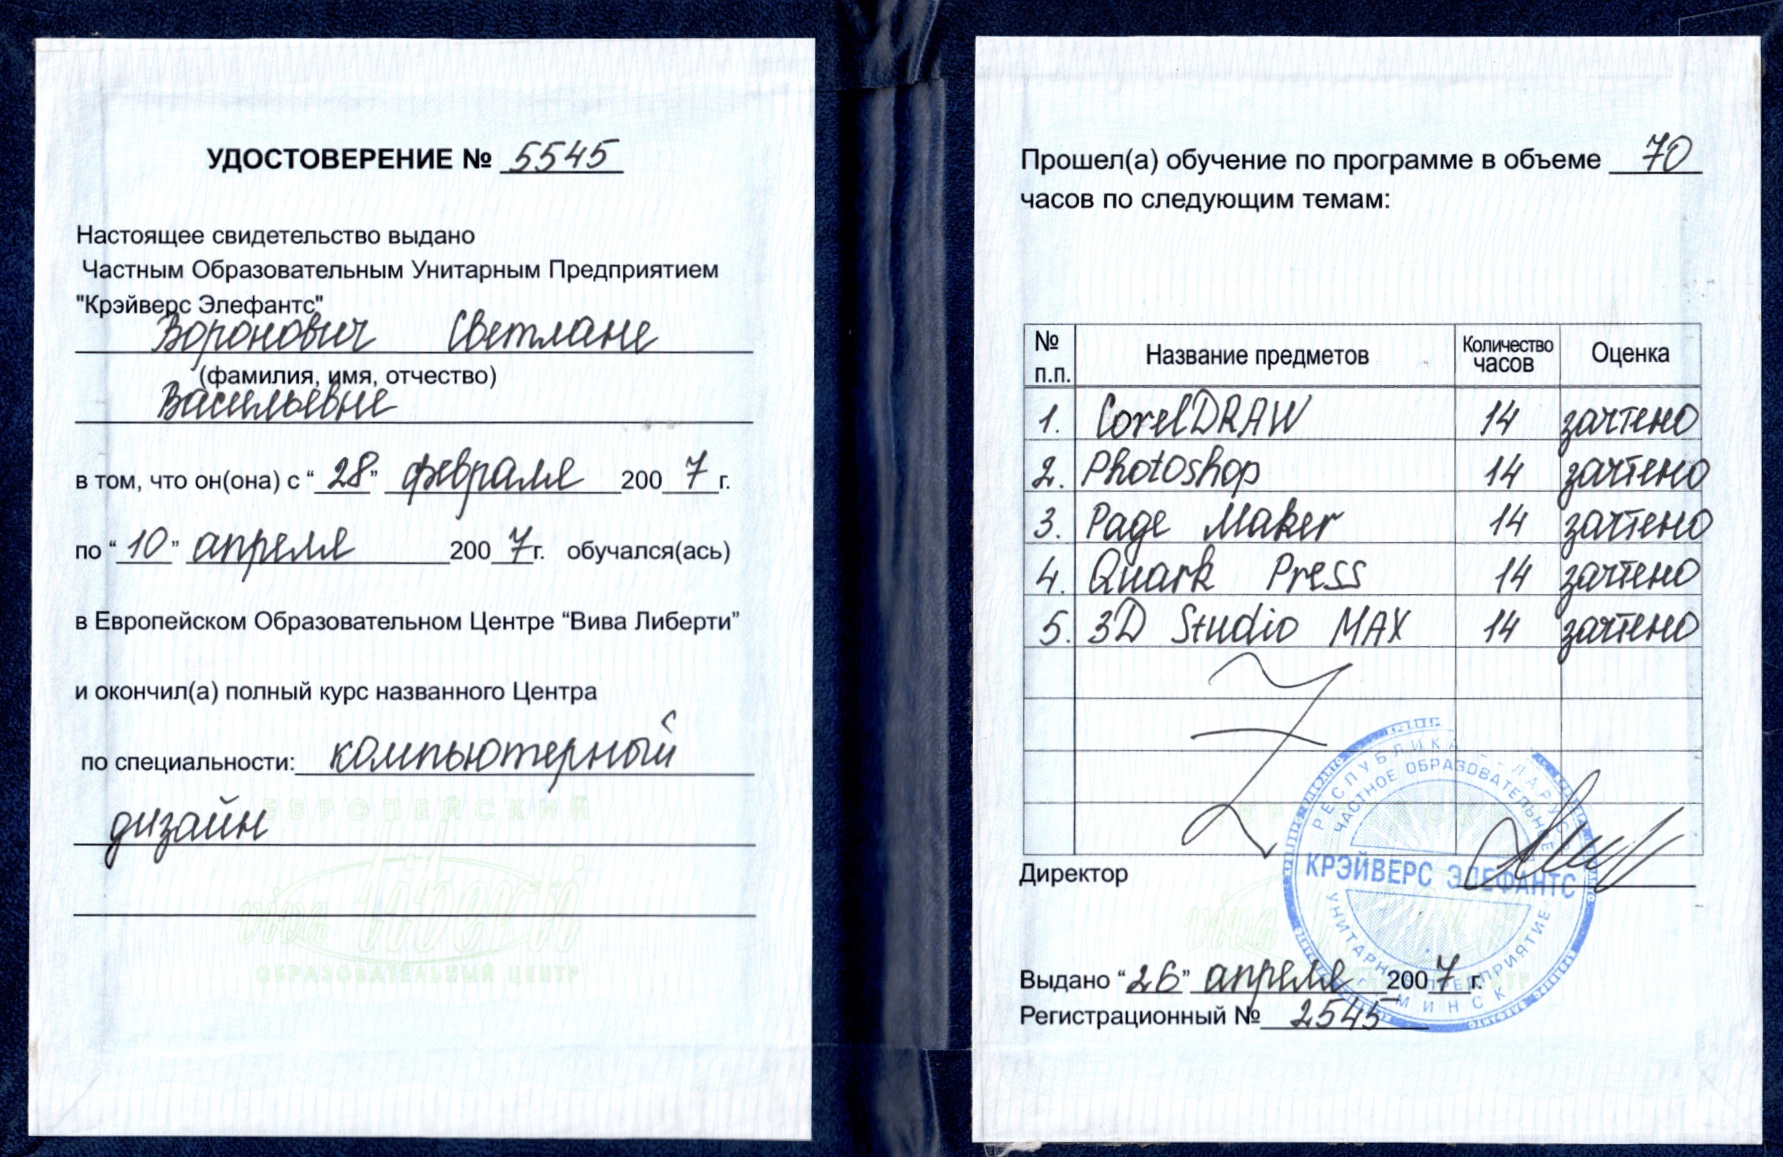 УДОСТОВЕРЕНИЕ № 5545
Настоящее свидетельство выдано
Частным Образовательным Унитарным Предприятием
"Крэйверс Элефантс"
Воронович Светлане
(фамилия, имя, отчество)
Васильевне
в том, что он(она) с “28” февраля 2007 г.
по “10” апреля 2007 г. обучался(ась)
в Европейском Образовательном Центре “Вива Либерти”
и окончил(а) полный курс названного Центра
по специальности: компьютерный
дизайн
ЕВРОПЕЙСКИЙ
viva liberti
ОБРАЗОВАТЕЛЬНЫЙ ЦЕНТР
Прошел(а) обучение по программе в объеме 70
часов по следующим темам:
№ п.п. Название предметов Количество часов Оценка
1. CorelDRAW 14 зачтено
2. Photoshop 14 зачтено
3. Page Maker 14 зачтено
4. Quark Press 14 зачтено
5. 3D Studio MAX 14 зачтено
РЕСПУБЛИКА БЕЛАРУСЬ
ЧАСТНОЕ ОБРАЗОВАТЕЛЬНОЕ
КРЭЙВЕРС ЭЛЕФАНТС
УНИТАРНОЕ ПРЕДПРИЯТИЕ
МИНСК
Директор
Выдано “26” апреля 2007 г.
Регистрационный № 2545